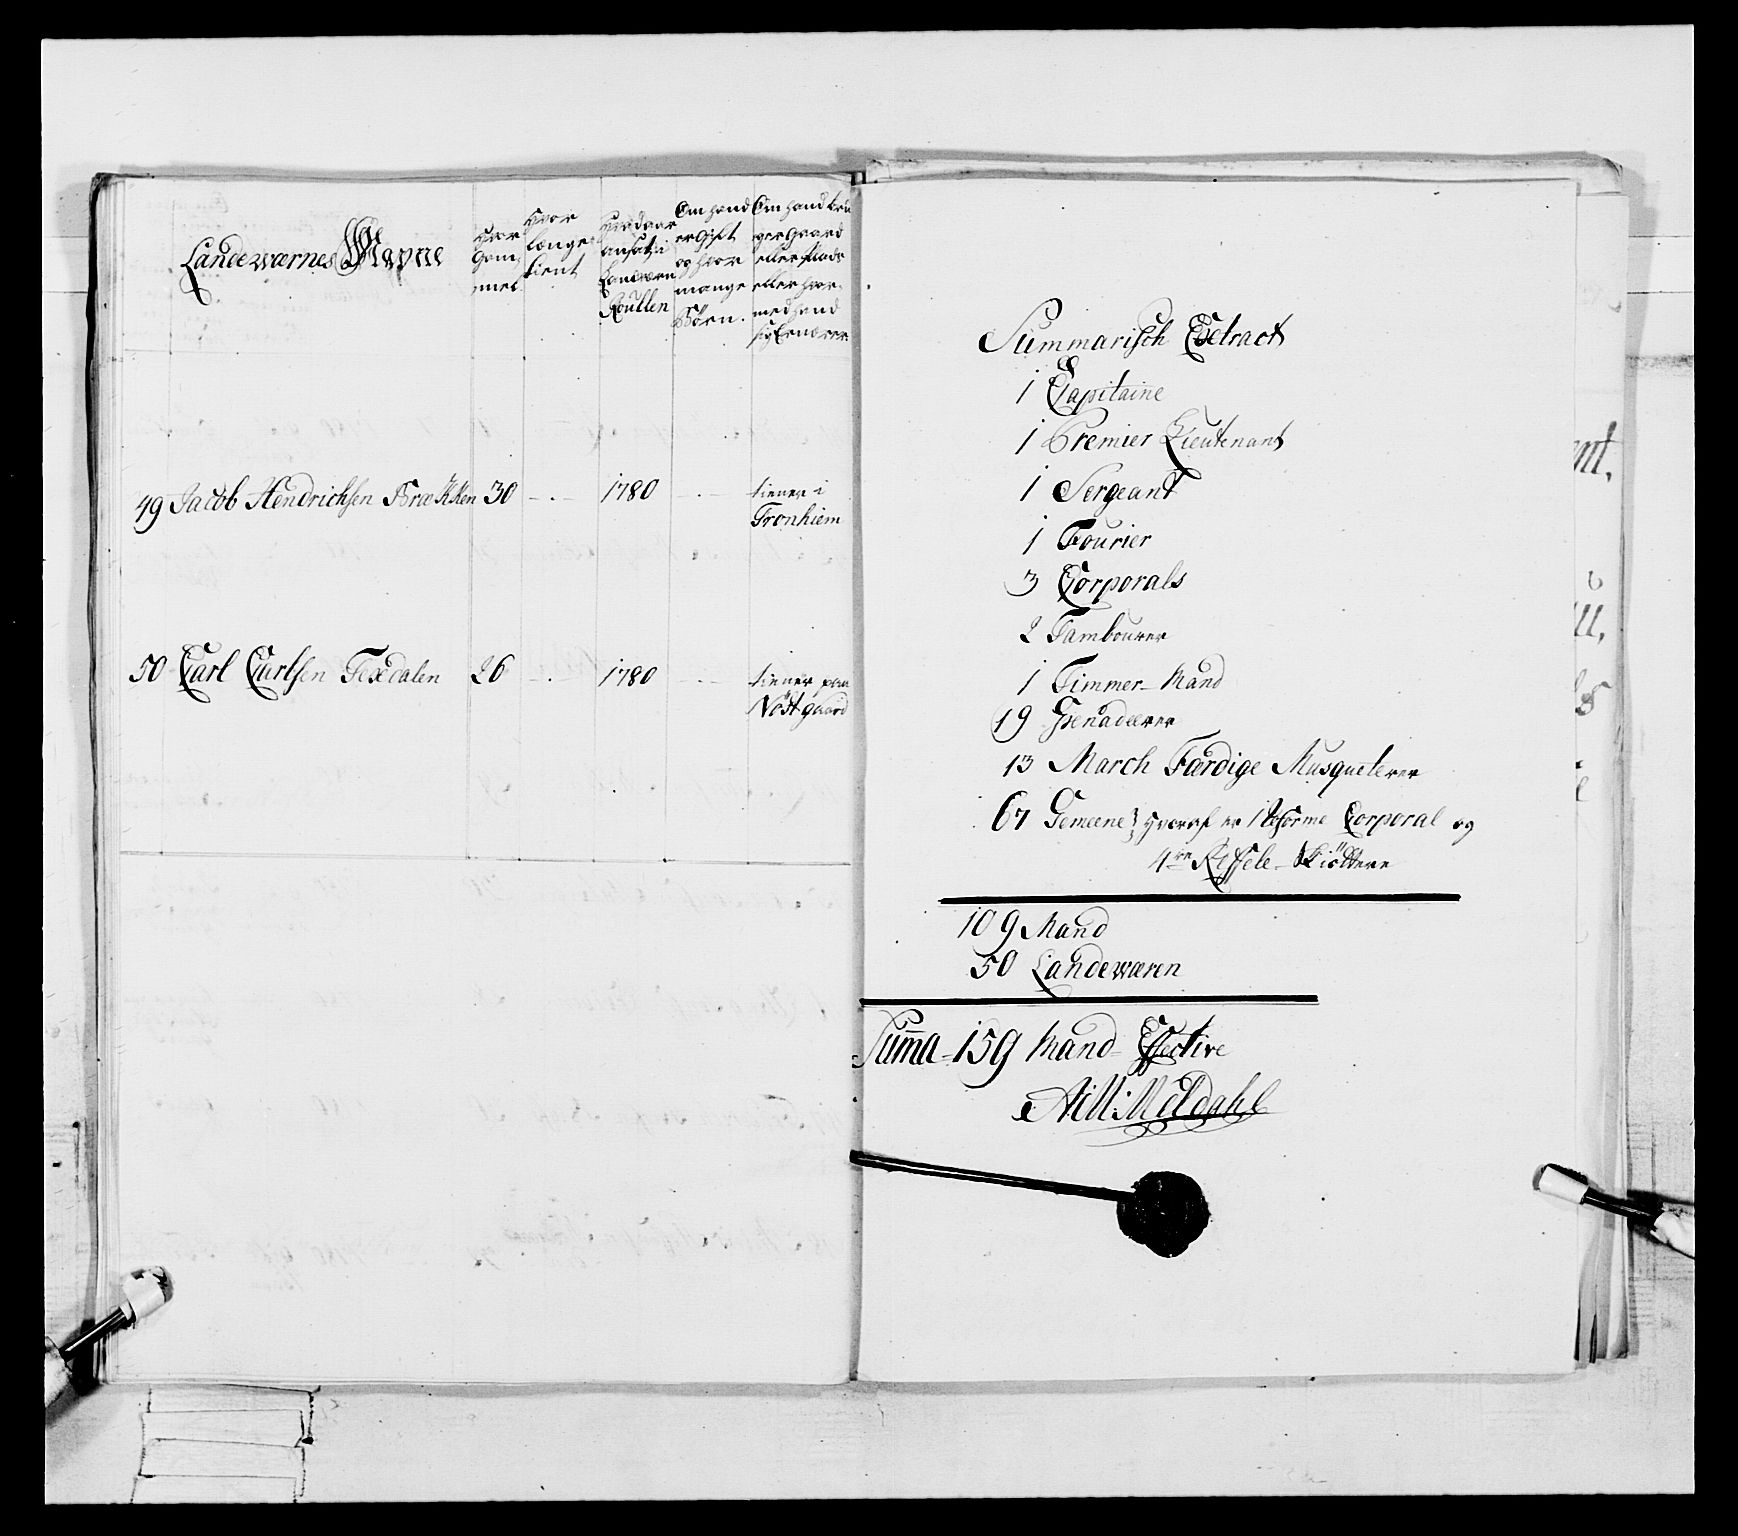 Landeværnes Navne
Hvor Gam, mel
Hvor længe tient
Hvad aar ansat i Landværn Roullen
Om hand er Gift og hvor mange Börn.
Om hand bru ger Gaard eller Plads eller hvor, med hand sig Ernærer
49 Jacob Hendrichsen Brækken 30 1780 tiener i
Tronhiem
50 Carl Carlsen Fexdalen 26 1780 tiener paa
Nöstgaard
Summarisch Extract
1 Capitaine
1 Premier Lieutenant
1 Sergeant
1 Fourier
3 Corporals
2 Tambourer
1 Timmer-Mand
19 Grenaderer
13 March Færdige Musqueterer
67 Gemeene hvoraf er 1 Reforme Corporal og
4re Reffele-Skiöttere
109 Mand
50 Landeværen
Summa-159 Mand Effective
Meldahl